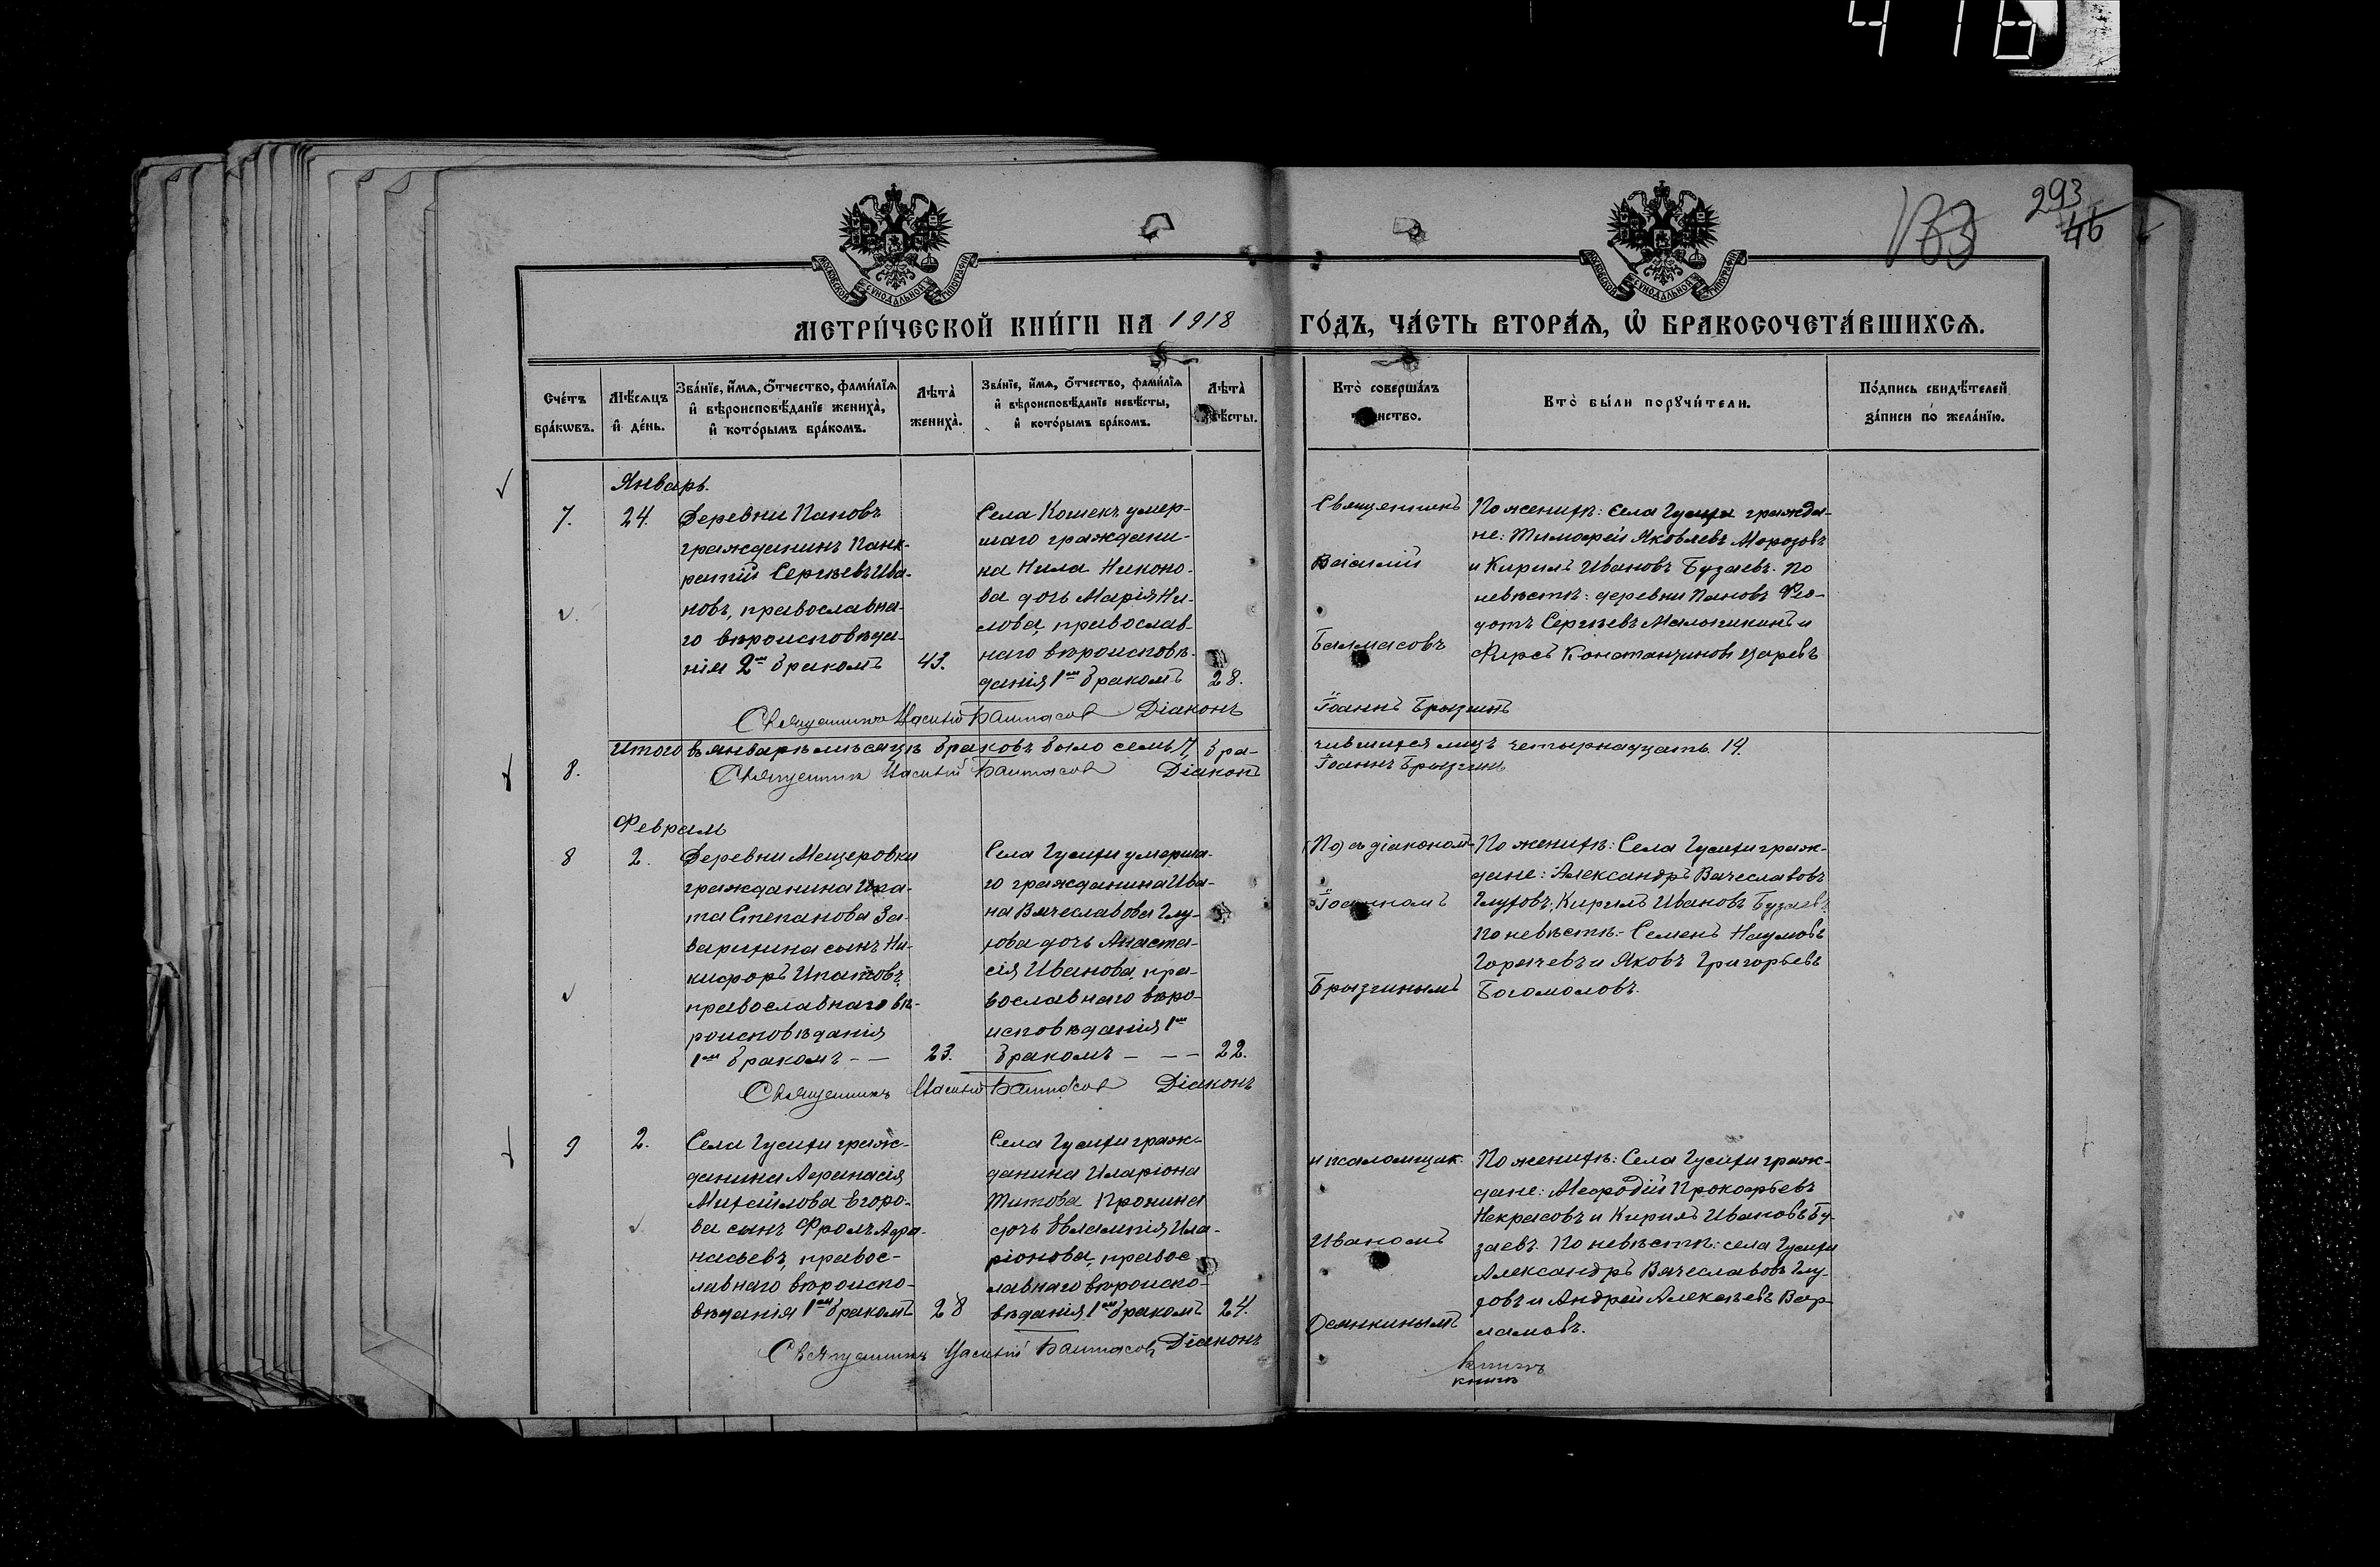 416
293
46
133
МОСКОВСКОЙ СѴНОДАЛЬНОЙ ТИПОГРАФІИ
МОСКОВСКОЙ СѴНОДАЛЬНОЙ ТИПОГРАФІИ
МЕТРИ́ЧЕСКОЙ КНИ́ГИ НА 1918 ГО́ДЪ, ЧА́СТЬ ВТОРА́Ѧ, Ѽ БРАКОСОЧЕТА́ВШИХСѦ.
Сче́тъ
бра́кѡвъ.
Мѣ́сѧцъ
и҆ де́нь.
Зва́нїе, и҆́мѧ, ѻ҆́тчество, фами́лїѧ
и҆ вѣроисповѣ́данїе жениха̀,
и҆ кото́рымъ бра́комъ.
Лѣта̀
жениха̀.
Зва́нїе, и҆́мѧ, ѻ҆́тчество, фами́лїѧ
и҆ вѣроисповѣ́данїе невѣ́сты,
и҆ кото́рымъ бра́комъ.
Лѣта̀
невѣ́сты.
Кто̀ соверша́лъ
таинство.
Кто̀ бы́ли порꙋчи́тели.
По́дпись свидѣ́телей
за́писи по жела́нїю.
Январь.
7.
24.
Деревни Пановъ
гражданинъ Панк-
ратій Сергѣевъ Ива-
новъ, православна-
го вѣроисповѣда-
нія 2ᵐ бракомъ
43.
Села Кошекъ умер-
шаго граждани-
на Нила Никоно-
ва дочь Марія Ни-
лова, православ-
наго вѣроисповѣ-
данія 1ᵐ бракомъ
28.
Священникъ
Василій
Балмасовъ
По женихѣ: села Гусихи гражда-
не: Тимофей Яковлевъ Морозовъ
и Кирилъ Ивановъ Бузаевъ. По
невѣстѣ: деревни Пановъ Фео-
дотъ Сергѣевъ Малыкинъ и
Фирсъ Константиновъ Царевъ
Священникъ Василій Балмасовъ Діаконъ Іоаннъ Брызгинъ
Итого въ январѣ мѣсяцѣ браковъ было семь 7, бра-
чившихся лицъ четырнадцать 14.
8.
Священникъ Василій Балмасовъ Діаконъ Іоаннъ Брызгинъ
Февраль
8
2.
Деревни Мещеровки
гражданина Ипа-
та Степанова За-
варихина сынъ Ни-
кифоръ Ипатовъ,
православнаго вѣ-
роисповѣданія
1ᵐ бракомъ – –
23.
Села Гусихи умерша-
го гражданина Ива-
на Вячеславова Глу-
хова дочь Анаста-
сія Иванова, пра-
вославнаго вѣро-
исповѣданія 1ᵐ
бракомъ – – –
22.
съ діакономъ
Іоанномъ
Брызгинымъ
По женихѣ: Села Гусихи граж-
дане: Александръ Вячеславовъ
Глуховъ, Кирилъ Ивановъ Бузаевъ.
По невѣстѣ: Семенъ Наумовъ
Горячевъ и Яковъ Григорьевъ
Богомоловъ.
Священникъ Василій Балмасовъ Діаконъ
9
2.
Села Гусихи граж-
данина Афанасія
Михайлова Егоро-
ва сынъ Фролъ Афа-
насьевъ, правос-
лавнаго вѣроиспо-
вѣданія 1ᵐ бракомъ
28
Села Гусихи граж-
данина Иларіона
Титова Пронина
дочь Евлампія Ила-
ріонова, правос
лавнаго вѣроиспо-
вѣданія 1ᵐ бракомъ
24.
и псаломщик.
Иваномъ
Осянкинымъ
По женихѣ: Села Гусихи граж-
дане: Мефодій Прокофьевъ
Некрасовъ и Кирилъ Ивановъ Бу-
заевъ. По невѣстѣ: села Гусихи
Александръ Вячеславовъ Глу-
ховъ и Андрей Алексѣевъ Вар-
ламовъ.
Священникъ Василій Балмасовъ Діаконъ